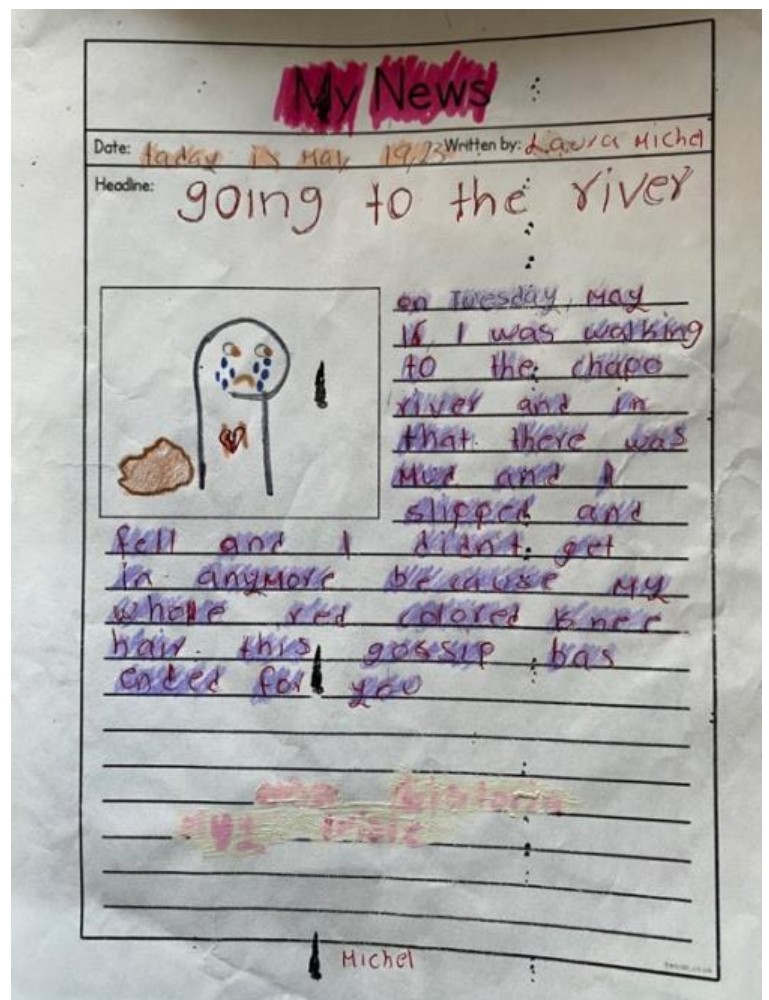 My News
Date: taday is May 19,23 Written by: Laura Michel
Headline: going to the river
on Tuesday, May
I was walking
to the chapo
river and in
that there was
Mud and I
slipped and
fell and I didn't get
in anymore because my
whole red colored knee
hair. this gossip has
ended for you
Michel